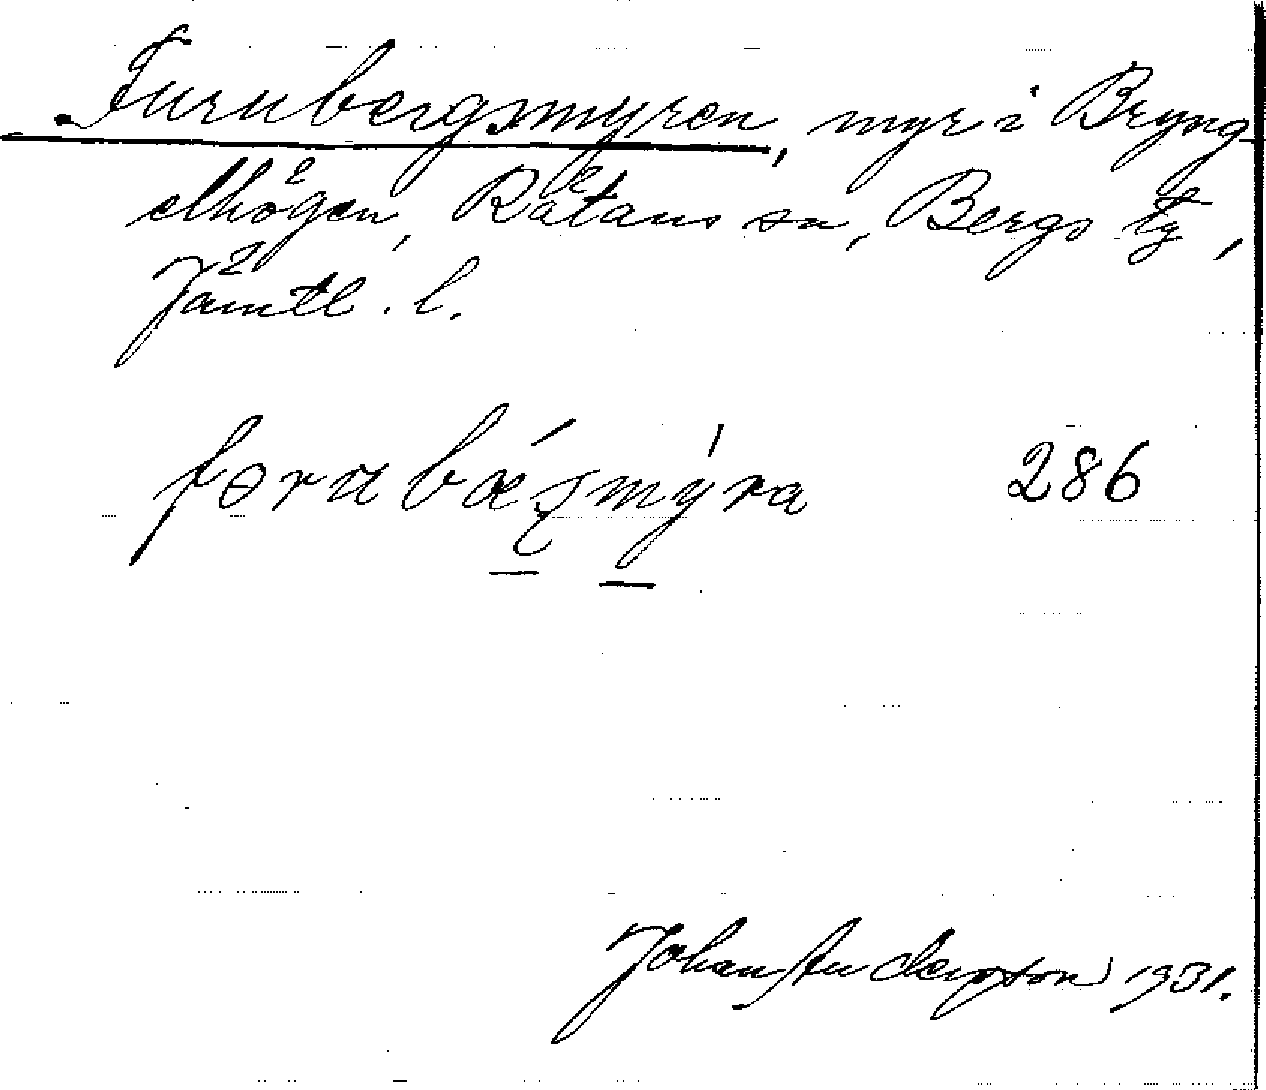 Furubergsmyren, myr i Bryng-
elhögen, Rätans sn, Bergs tg,
Jämtl. l.
forubæʂmýra 286
Johan Anderson 1931.